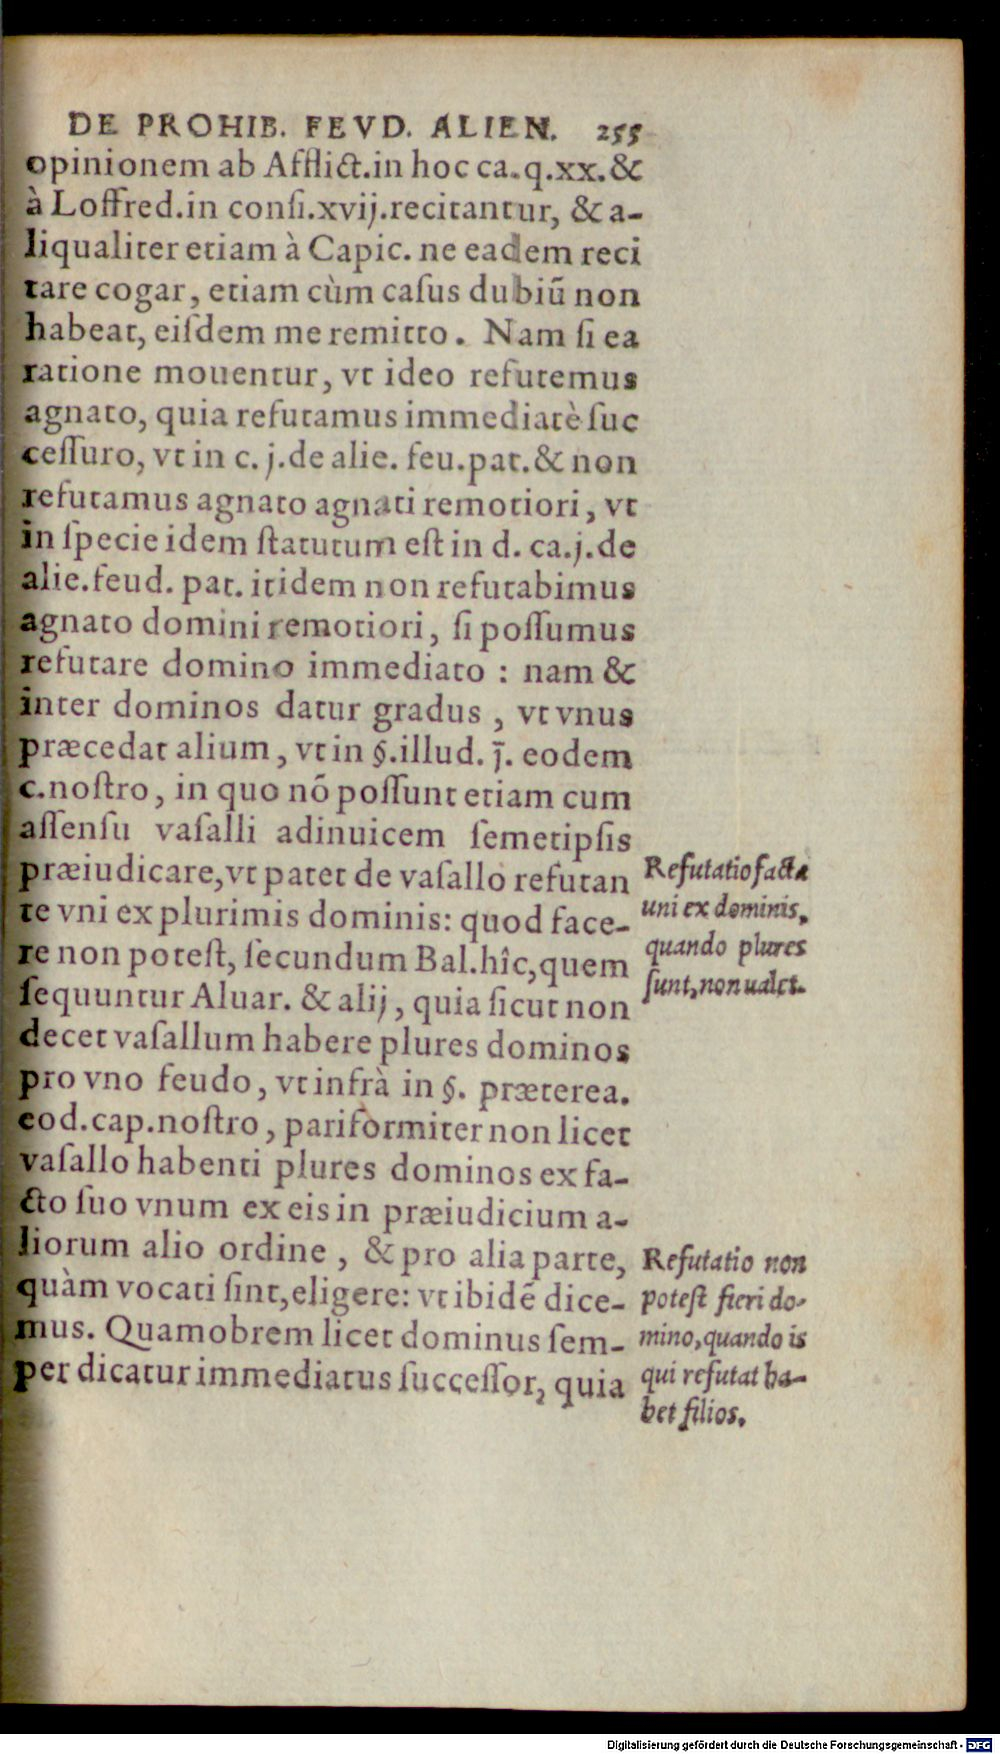 DE PROHIB. FEVD. ALIEN. 255
opinionem ab Afflict.in hoc ca.q.xx.&
à Loffred.in conſi.xvij.recitantur, & a-
liqualiter etiam à Capic. ne eadem reci
tare cogar, etiam cùm caſus dubiū non
habeat, eiſdem me remitto. Nam ſi ea
ratione mouentur, vt ideo refutemus
agnato, quia refutamus immediatè ſuc
ceſſuro, vt in c. j.de alie. feu.pat.& non
refutamus agnato agnati remotiori, vt
in ſpecie idem ſtatutum eſt in d. ca.j.de
alie.feud. pat. itidem non refutabimus
agnato domini remotiori, ſi poſſumus
refutare domino immediato : nam &
inter dominos datur gradus , vt vnus
præcedat alium, vt in §.illud. j̄. eodem
c.noſtro, in quo nō poſſunt etiam cum
aſſenſu vaſalli adinuicem ſemetipſis
præiudicare,vt patet de vaſallo refutan
te vni ex plurimis dominis: quod face-
re non poteſt, ſecundum Bal.hîc,quem
ſequuntur Aluar. & alij, quia ſicut non
decet vaſallum habere plures dominos
pro vno feudo, vt infrà in §. præterea.
eod.cap.noſtro, pariformiter non licet
vaſallo habenti plures dominos ex fa-
cto ſuo vnum ex eis in præiudicium a-
liorum alio ordine , & pro alia parte,
quàm vocati ſint,eligere: vt ibidē dice-
mus. Quamobrem licet dominus ſem-
per dicatur immediatus ſucceſſor, quia
Refutatio facta
uni ex dominis,
quando plures
ſunt,non ualet.
Refutatio non
poteſt fieri do-
mino,quando is
qui refutat ha-
bet filios.
Digitalisierung gefördert durch die Deutsche Forschungsgemeinschaft - DFG